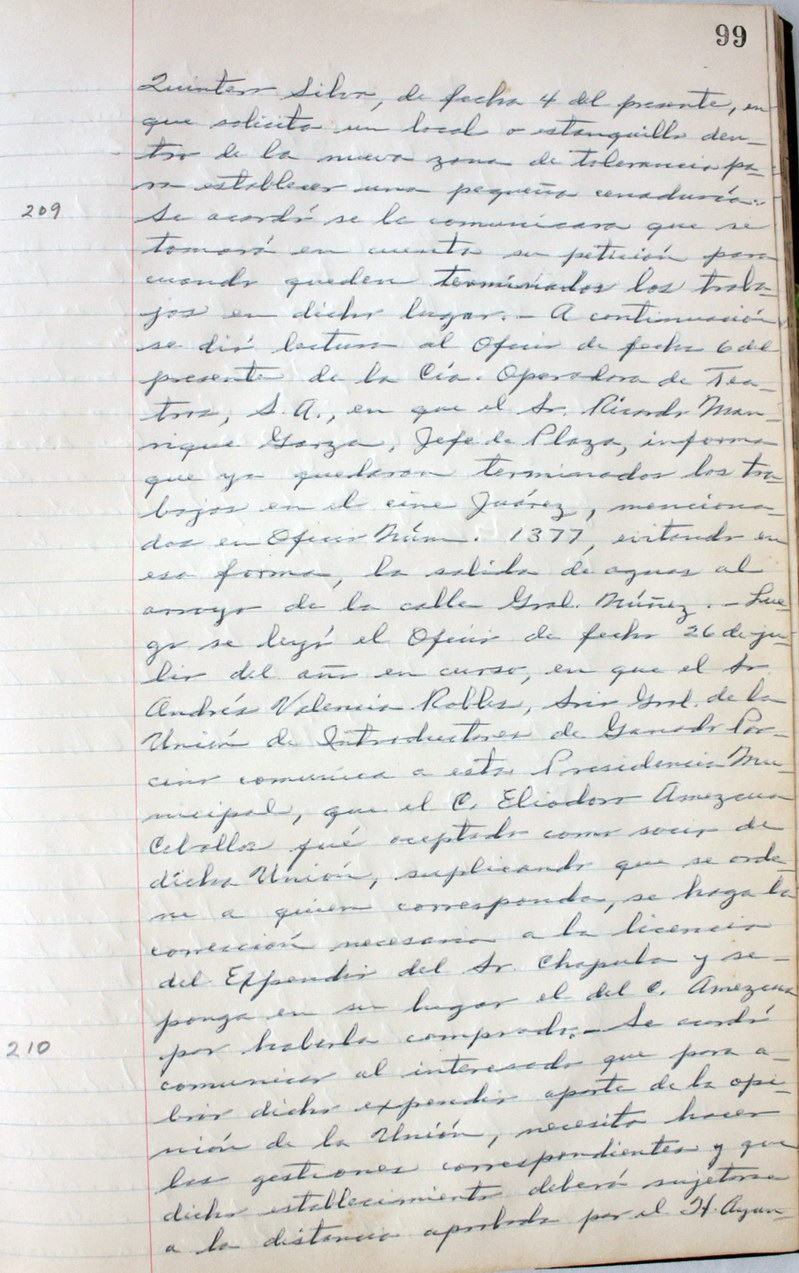 99
Quintero Silva, de fecha 4 del presente, en
que solicita un local o estanquillo den-
tro de la nueva zona de tolerancia pa-
ra establecer una pequeña cenaduría.-
209
Se acordó se le comunicara que se
tomará en cuenta su petición para
cuando queden terminados los traba-
jos en dicho lugar.- A continuación
se dió lectura al Oficio de fecha 6 del
presente de la Cía. Operadora de Tea-
tros, S. A., en que el Sr. Ricardo Man-
rique Garza, Jefe de Plaza, informa
que ya quedaron terminados los tra-
bajos en el cine Juárez, menciona-
dos en Oficio Núm. 1377, evitando en
esa forma, la salida de aguas al
arroyo de la calle Gral. Núñez.- Lue-
go se leyó el Oficio de fecha 26 de ju-
lio del año en curso, en que el Sr.
Andrés Valencia Robles, Srio Gral. de la
Unión de Introductores de Ganado Por-
cino comunica a esta Presidencia Mu-
nicipal, que el C. Eliodoro Amezcua
Ceballos fué aceptado como socio de
dicha Unión, suplicando que se orde-
ne a quien corresponda, se haga la
corrección necesaria a la licencia
del Expendio del Sr. Chapula y se-
ponga en su lugar el del C. Amezcua
por haberla comprado.- Se acordó
210
comunicar al interesado que para a-
brir dicho expendio aparte de la opi-
nión de la Unión, necesita hacer
las gestiones correspondientes y que
dicho establecimiento deberá sujetarse
a la distancia aprobada por el H. Ayun-